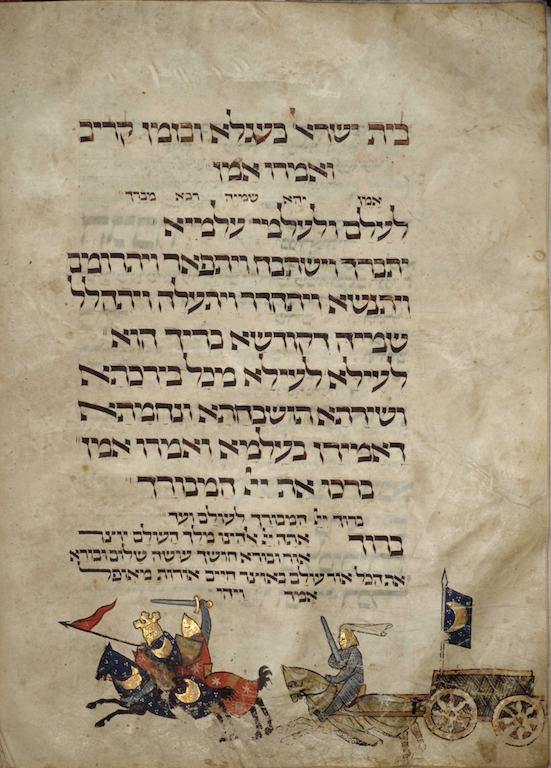 בית ישראל בעגלא ובזמן קריב
ואמרו אמן
אמן יהא שמיה רבא מברך
לעלם ולעלמי עלמייא
יתברך וישתבח ויתפאר ויתרומם
ויתנשא ויתהדר ויתעלה ויתהלל
שמיה דקודשא בריך הוא
לעילא לעילא מכל בירכתא
ושירתא תושבחתא ונחמתא
דאמירן בעלמא ואמרו אמן
ברכו את ייי המבורך
ברוך ייי המבורך לעולם ועד
ברוך אתה ייי אלהינו מלך העולם יוצר
אור ובורא חושך עושה שלום ובורא
את הכל אור עולם באוצר חיים אורות מאופל
אמר ויהי